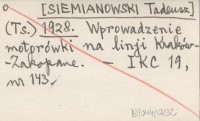 [SIEMIANOWSKI Tadeusz]
(Ts.) 1928. Wprowadzenie
motorówki na linji Kraków-
-Zakopane. - IKC 19,
nr 143.